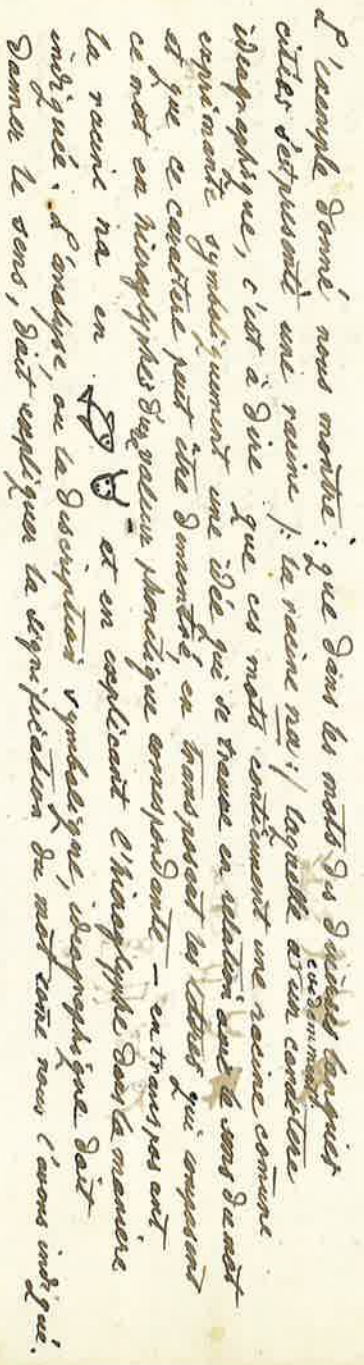 L'exemple donné nous montre: que dans les mots des diverses langues
citées s'est presenté une racine /: la racine na :/ laquelle a un caractère
evidemment
ideographique, c'est à dire que ces mots contienent une racine comune
exprimante symboliquement une idée qui se trouve en relation avec le sens du mot
et que ce caractere peut être demontré en transposant les lettres qui composent
ce mot en hieroglyphes d'une valeur phonetique correspondente – en transposant
la racine na en et en explicant l'hieroglyphe dans la maniere
indiquée. L'analyse, ou la discription symbolique, ideographique doit
donner le sens, doit expliquer la signification du mot come nous l'avons indiqué.